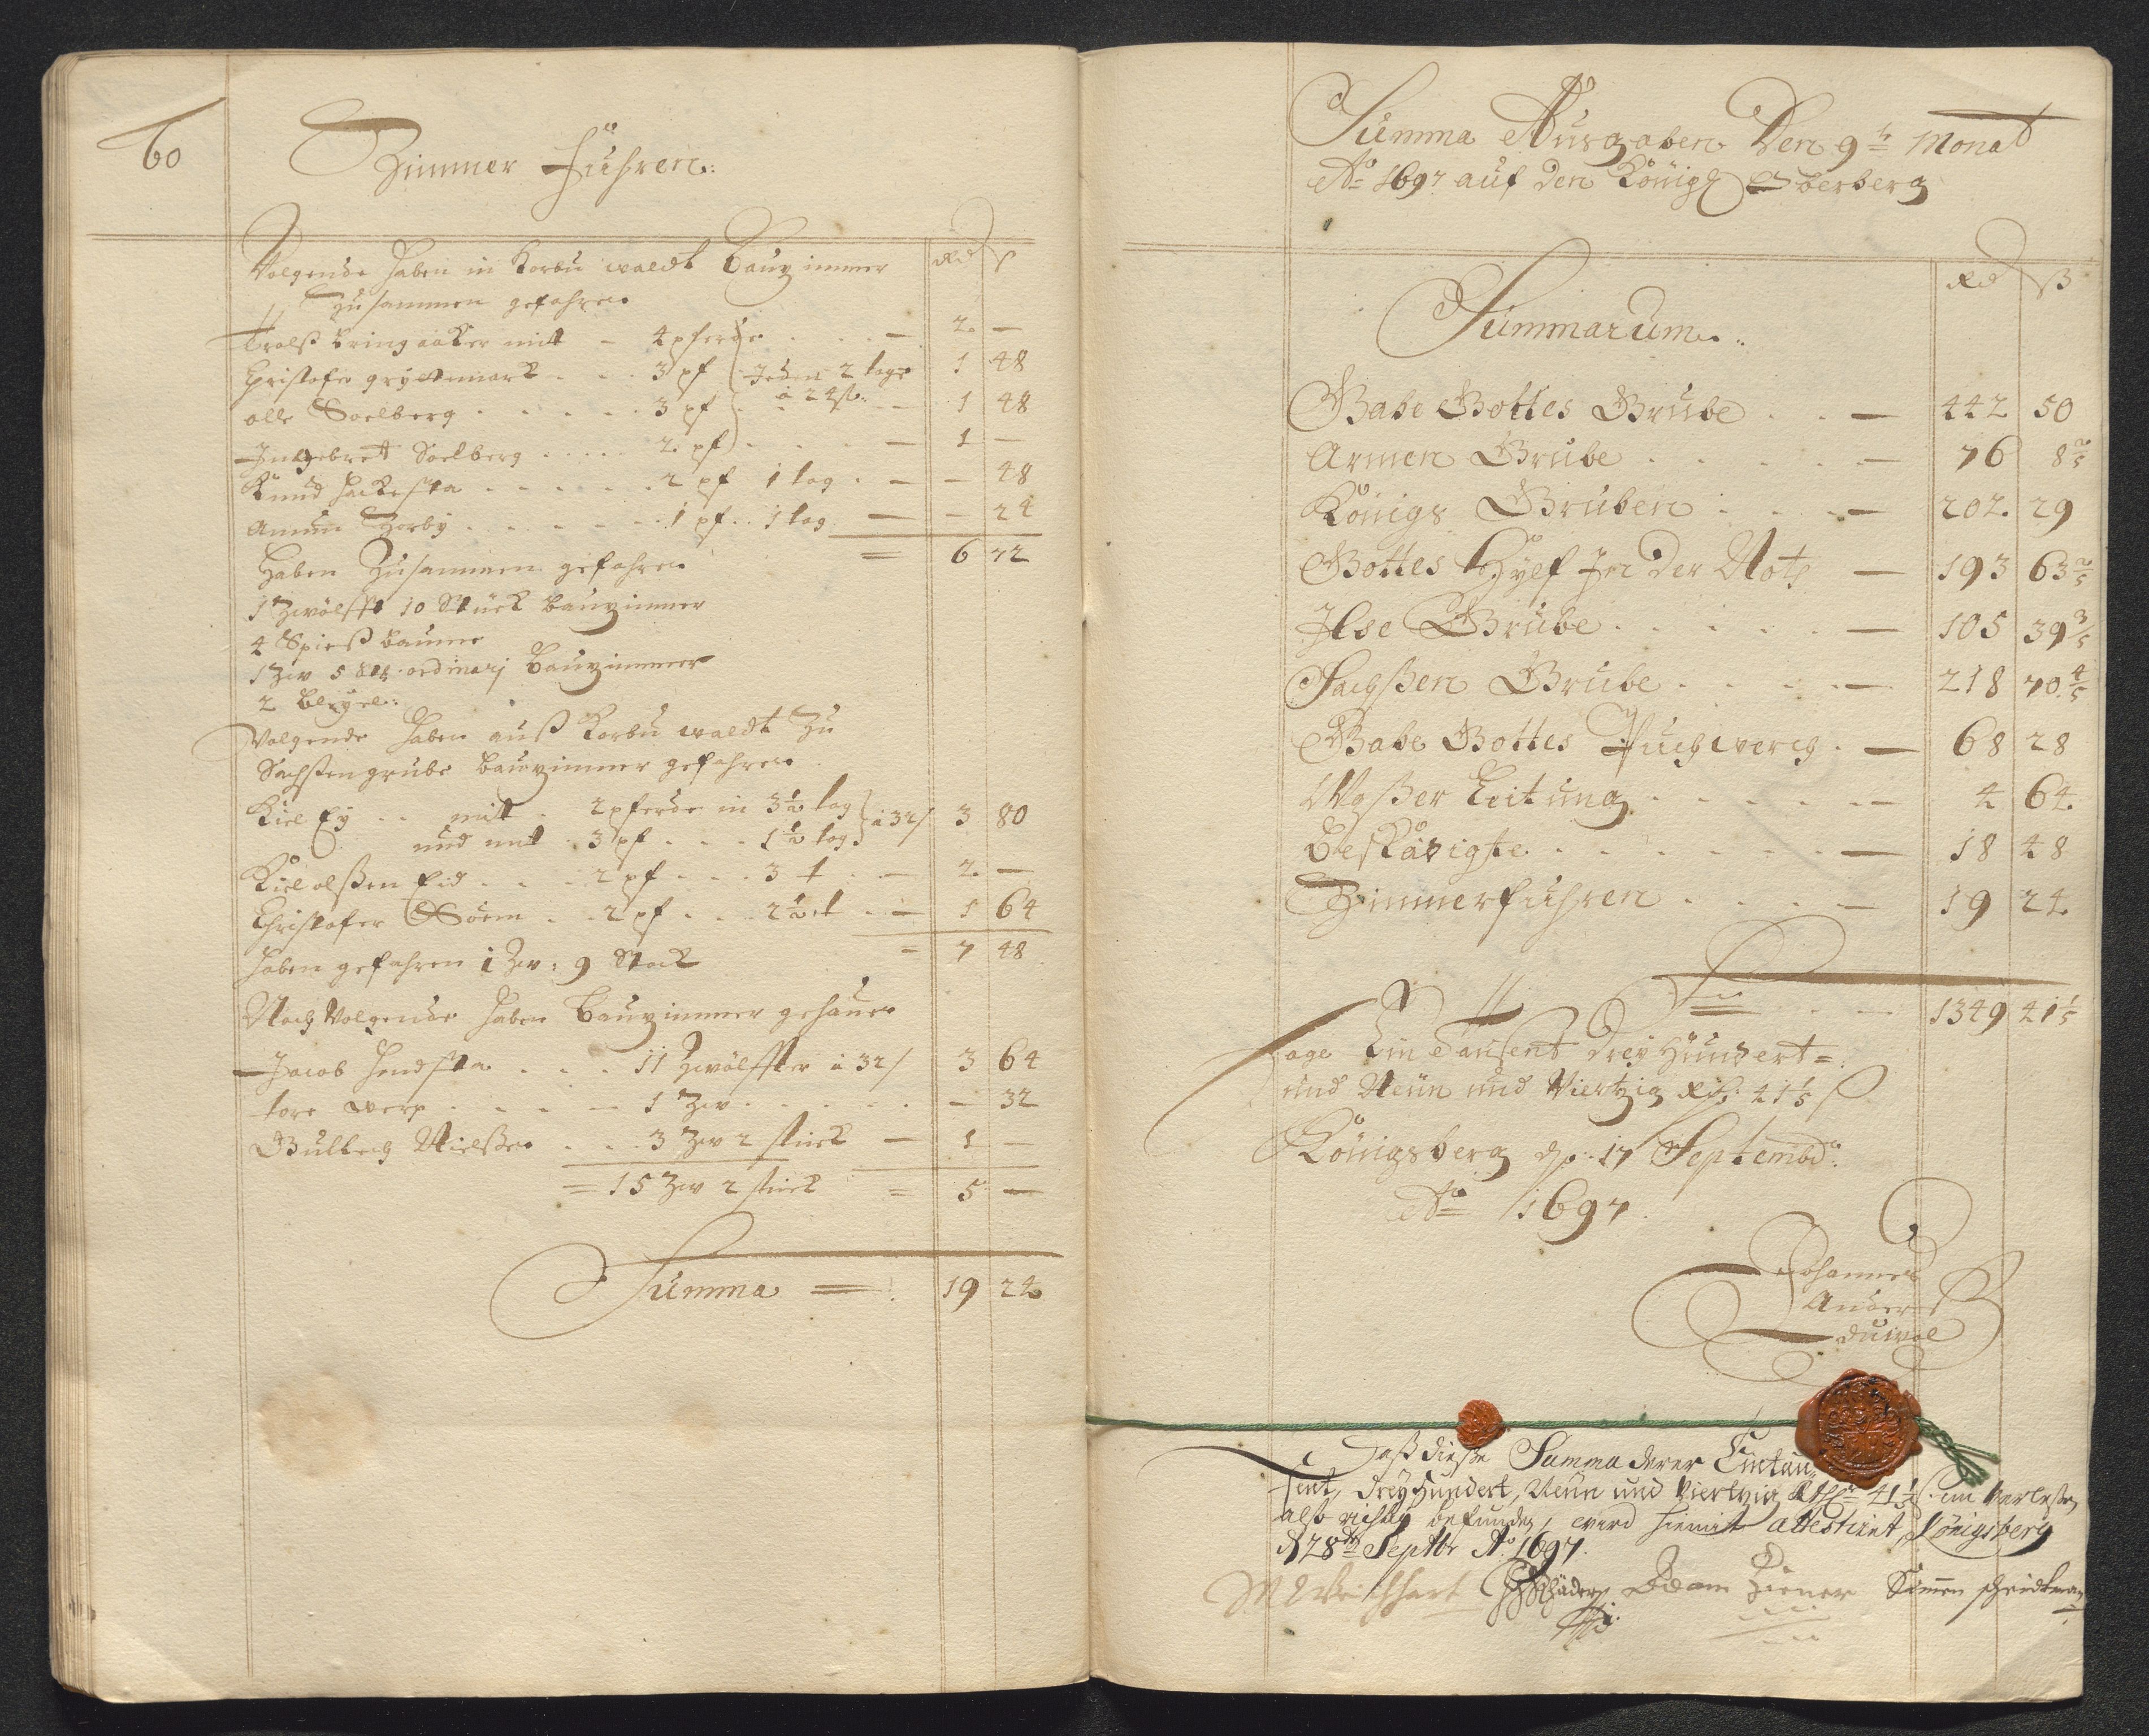 60
Zimmer Führen:
Rd ß
Volgende haben in Korbu waldt Bauzimmer
Zusammen gefahren
Trolß Bringaaker mit - 4 pferde . . . — 2. —
Christofer gryttmark . . . 3 pf (Jeden 2 tage 1 48
olle Soelberg . . . . . 3 pf à 24 ß. — 1 48
Ingebret Soelberg . . . . . 2 pf) . . . — 1 —
Knud Hackesta . . . . . . 2 pf 1 tag . — — 48
Amun Zorby . . . . . . 1 pf . . 1 tag — — 24
Haben Zusammen gefahren = 6 72
1 Zwölfft 10 Stück Bauzimmer
4 Spieß baume
1 Zw 5 Stk ordinarj Bauzimmer
2
Volgende haben auß Korbu waldt Zu
Sachsengrube bauzimmer gefahren
Kiel Ey . . mit . 2 pferde in 3½ tag } à 32/ 3 80
und mit . 3 pf . . . 1½ tag
Kiel olßen Eid . . . 2 pf . . . 3 t . — 2. —
Christofer . . 2 pf . . . 2½ t . . — 1 64
haben gefahren 1 Zw: 9 Stock = 7 48
Nach Volgende haben Bauzimmer gehauen
Jacob Hendsta . . . . 11 Zwölffter à 32/ 3 64
tore werp . . . . — 1 Zw . . . . . — 32
Gulbech Nielßen . . . 3 Zw 2 stück — 1 —
= 15 Zw 2 stück = 5 —
Summa = 19 24
Summa Ausgaben Den 9t Monat
Ao 1697 auf den Königl Oberberg
Rd ß
Summarum.
Gabe Gottes Grube . . — 442 50
Armen Grube . . . . . — 76 8⅖
Königs Gruben . . . . — 202. 29
Gottes Hylf In der Noth — 193 63⅖
Ilse Grube . . . . . — 105 39⅗
Sachßen Grube . . . . — 218 70⅘
Gabe Gottes Puchwerch . — 68 28
Waßer Leitung . . . . . . — 4 64.
Beschädigte . . . . . . . — 18 48
Zimmerführen . . . . — 19 24.
S . . — 1349 41⅕
Sage Ein Tausent Drey Hundert=
und Neün und Viertzig Rth: 41⅕ ß
Königsberg d. 17 Septembr:
Ao 1697.
Johannes
Anders
duwal
Daß dieße Summa derer Eintau-
sent, Dreyhundert, Neun und Viertzig Rthlr 41⅕ ß im verlesen
alß richtig befunden, wird hiemit attestiret, Königsberg
d 28ten Septbr Ao 1697.
Adam Ziener Simen scheidtman